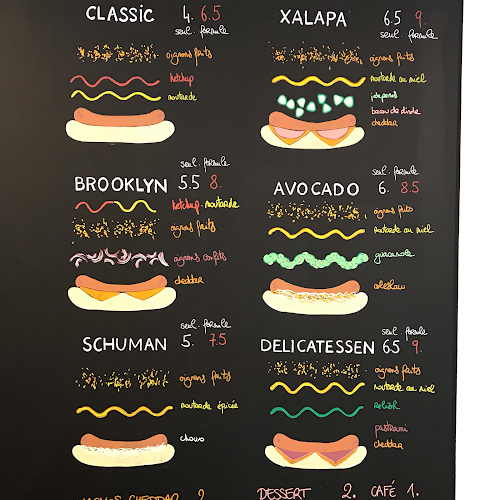 CLASSIC 4. 6.5
seul. formule
oignons frits
ketchup
moutarde
XALAPA 6.5 9.
seul. formule
oignons frits
moutarde au miel
jalapenos
bacon de dinde
cheddar
seul. formule
BROOKLYN 5.5 8.
ketchup. moutarde
oignons frits
oignons confits
cheddar
seul. formule
AVOCADO 6. 8.5
oignons frits
moutarde au miel
guacamole
coleslaw
seul. formule
SCHUMAN 5. 7.5
oignons frits
moutarde épicée
choux
seul. formule
DELICATESSEN 6.5 9.
oignons frits
moutarde au miel
relish
pastrami
cheddar
CHEDDAR 2
DESSERT 2. CAFÉ 1.